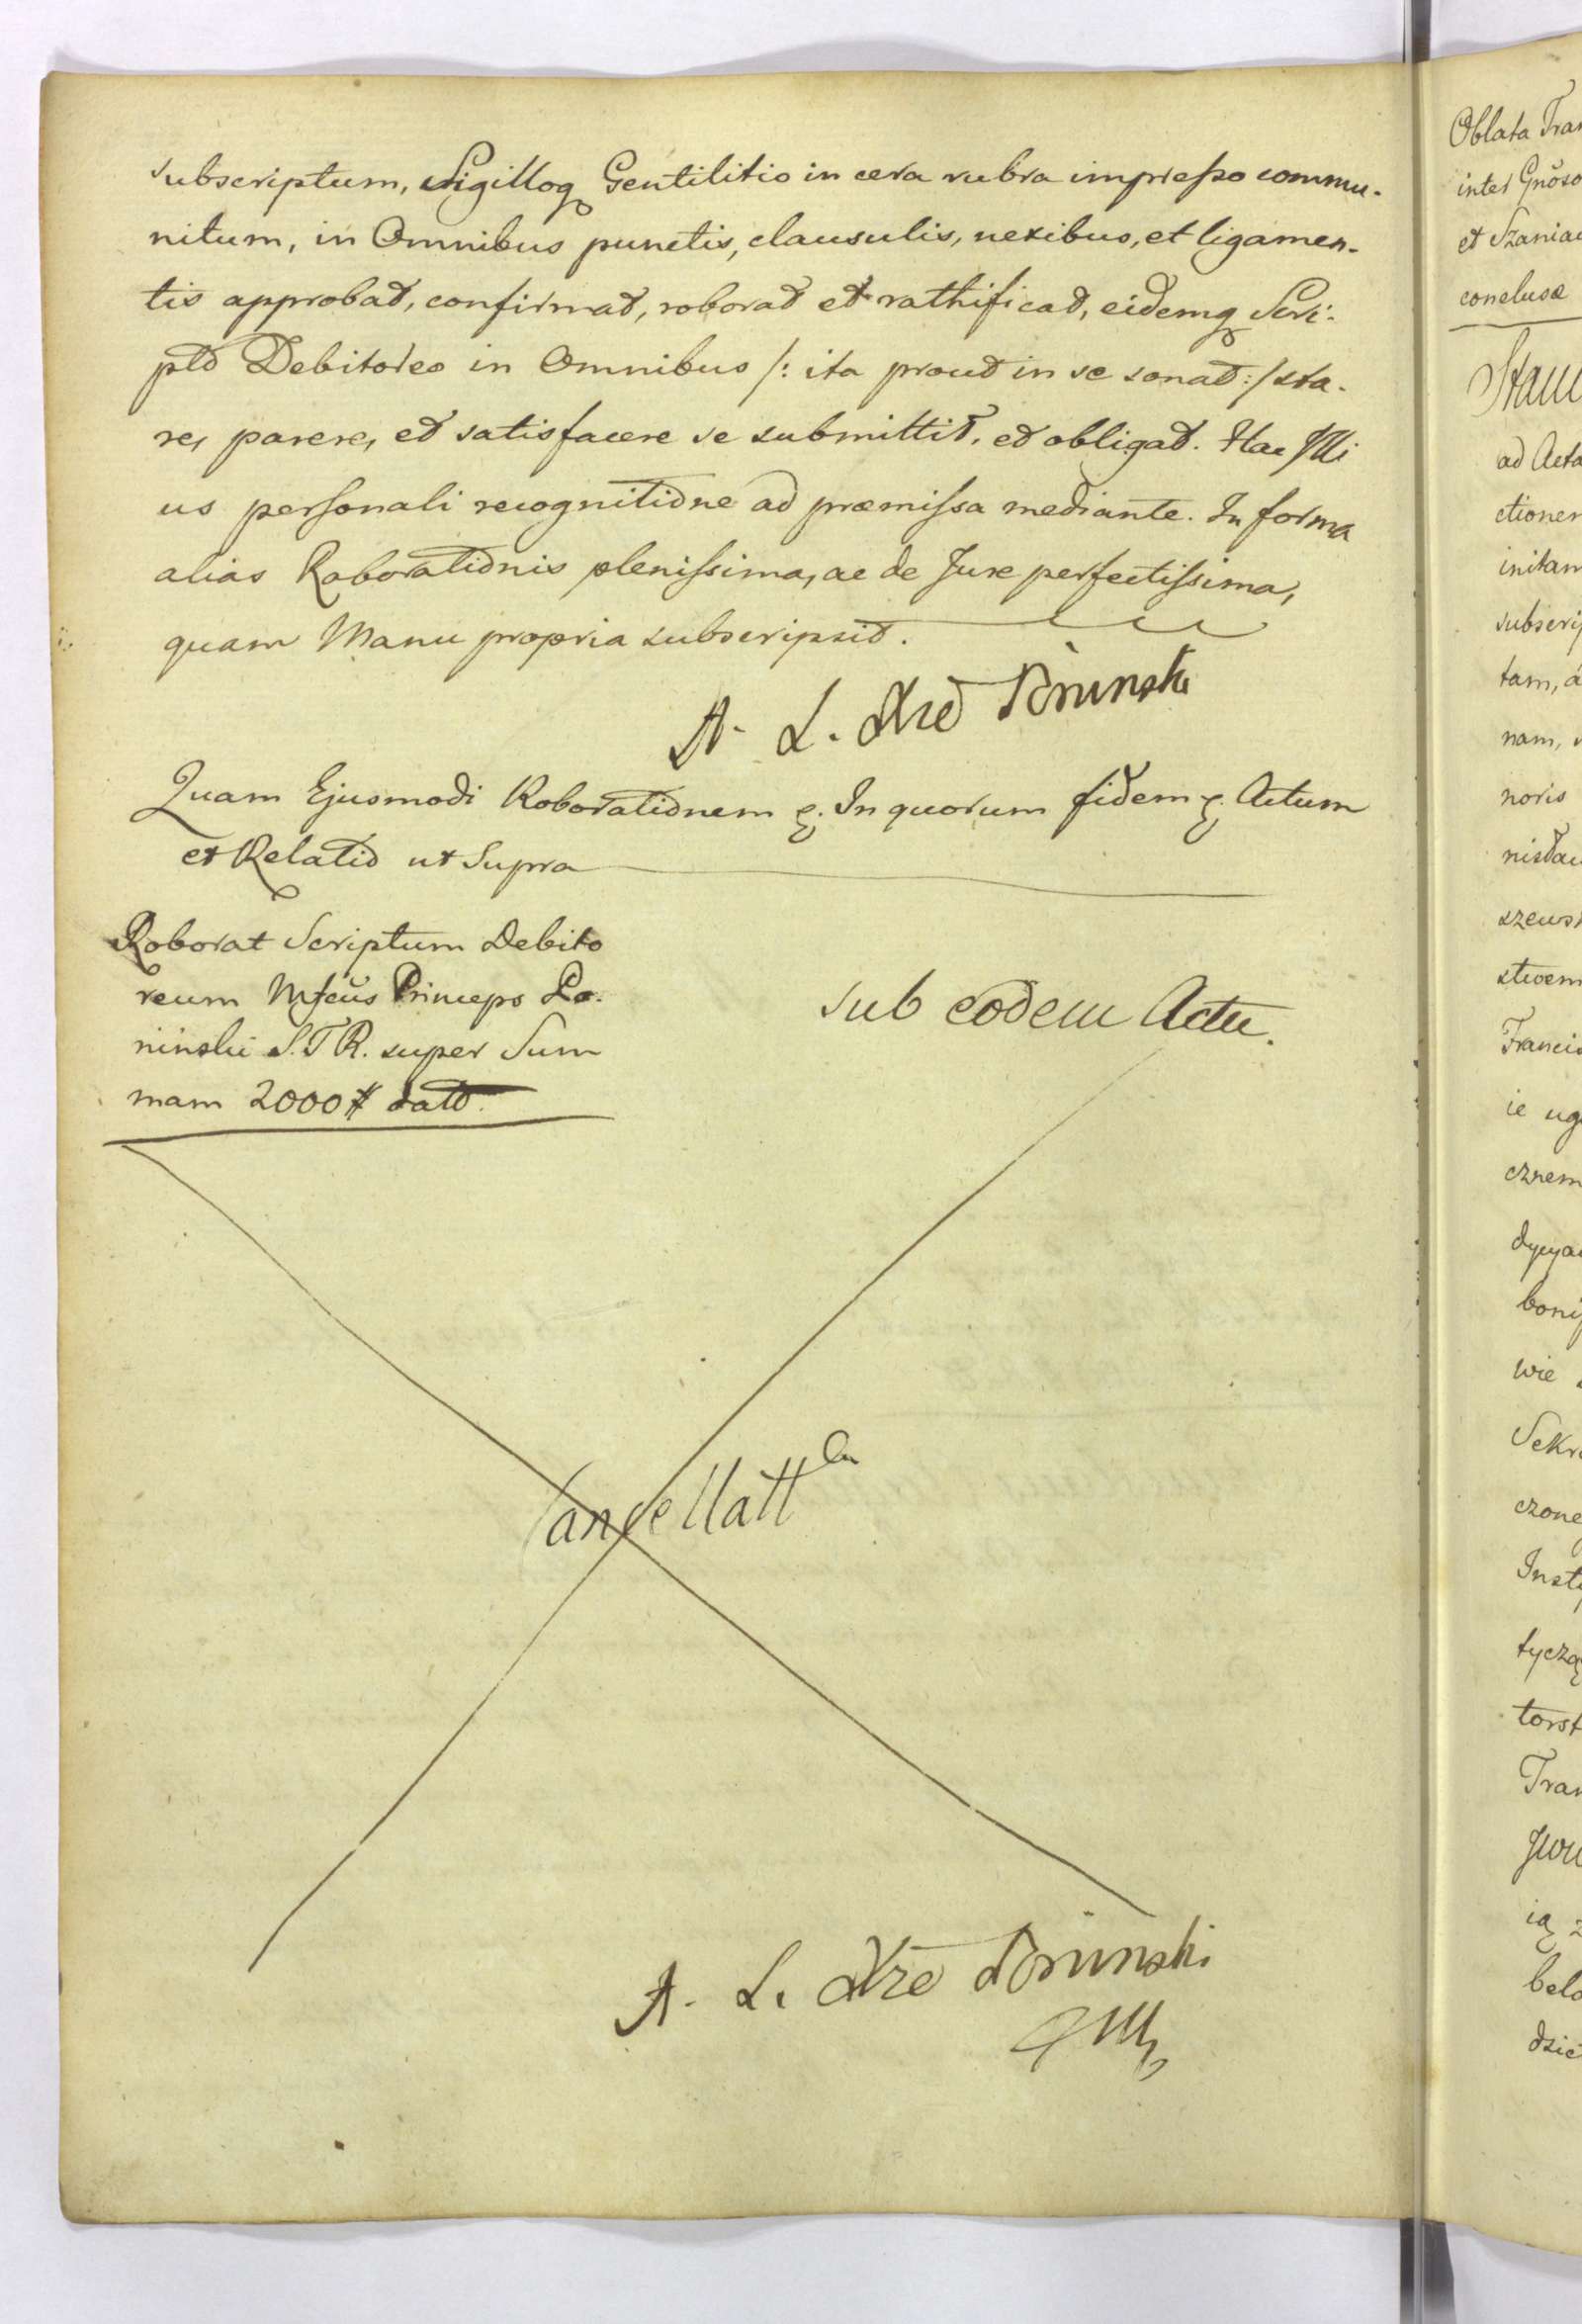 subscriptum, Sigilloq Gentilitio in cera rubra impresso commu-
nitum, in Omnibus punctis, clausulis, nexibus, et ligamen-
tis approbat, confirmat, roborat et rathificat, eidemq Scri-
pto Debitoreo in Omnibus /: ita prout in se sonat :/ sta-
re, parere, et satisfacere se submittit, et obligat. Hac Illi
us personali recognitione ad præmissa mediante. In forma
alias Roborationis plenissima, ac de Jure perfectissima,
quam Manu propria subscripsit.
A. L. Xże Poninski
Quam Ejusmodi Roborationem &. In quorum fidem &. Actum
et Relatio ut Supra
Roborat Scriptum Debito
reum Mfcus Princeps Po-
ninski S. T R. super Sum
mam 2000 # dato.
sub eodem Actu.
Cancellatt
A. L. Xże Poninski
Oblata Tran
inter Gnoso
et Szania
conclusæ
Stani
ad Acta
ctionen
initam
subscrip
tam, a
nam,
noris
nisław
szews
stwem
Francis
ie ug
cznem
dycya
boni
wie
Sekr
czone
Insty
tyczą
torst
Tran
ią z
belo
dzie